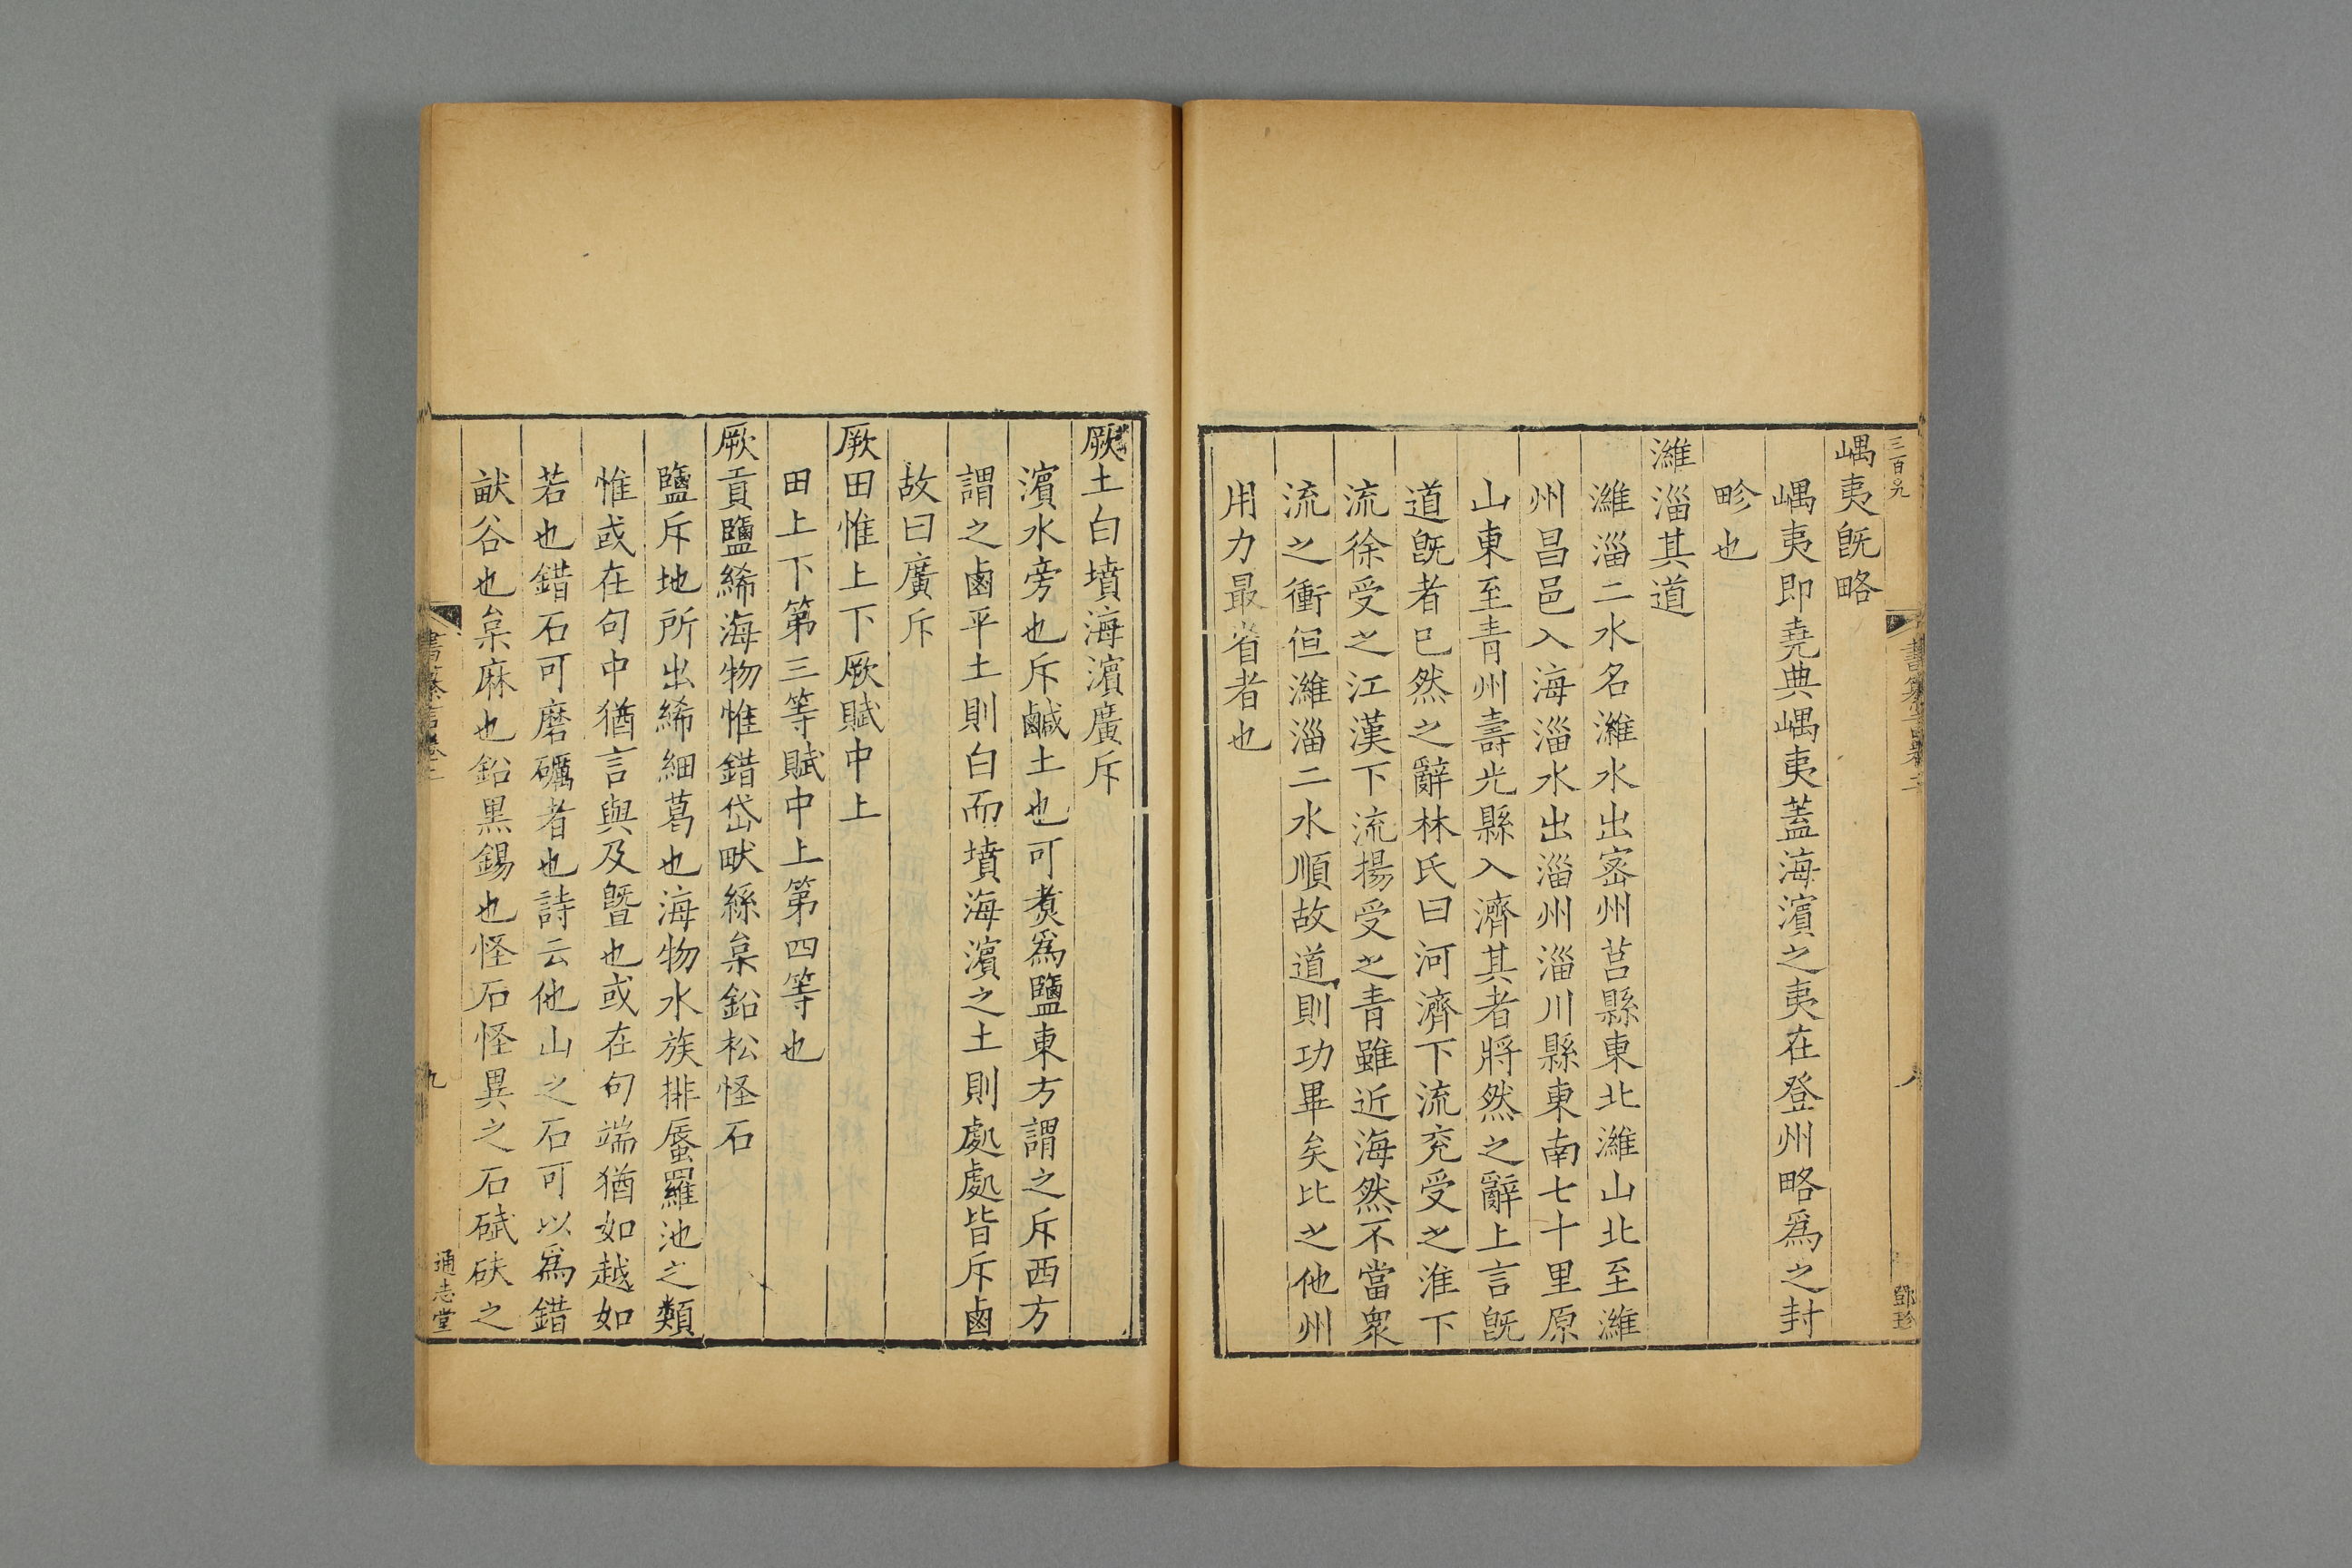 三百九
書纂言卷二
八
鄧珍
嵎夷旣略
嵎夷卽堯典嵎夷蓋海濱之夷在登州略爲之封
畛也
濰淄其道
濰淄二水名濰水出密州莒縣東北濰山北至濰
州昌邑入海淄水出淄州淄川縣東南七十里原
山東至青州壽光縣入濟其者將然之辭上言旣
道旣者已然之辭林氏曰河濟下流兖受之淮下
流徐受之江漢下流揚受之青雖近海然不當衆
流之衝但濰淄二水順故道則功畢矣比之他州
用力最省者也
厥土白墳海濱廣斥
濱水旁也斥鹹土也可煑爲鹽東方謂之斥西方
謂之鹵平土則白而墳海濱之土則處處皆斥鹵
故曰廣斥
厥田惟上下厥賦中上
田上下第三等賦中上第四等也
厥貢鹽絺海物惟錯岱畎絲枲鉛松怪石
鹽斥地所出絺細葛也海物水族排蜃羅池之類
惟或在句中猶言與及曁也或在句端猶如越如
若也錯石可磨礪者也詩云他山之石可以爲錯
畎谷也枲麻也鉛黑錫也怪石怪異之石碔砆之
書纂言卷二
九
通志堂